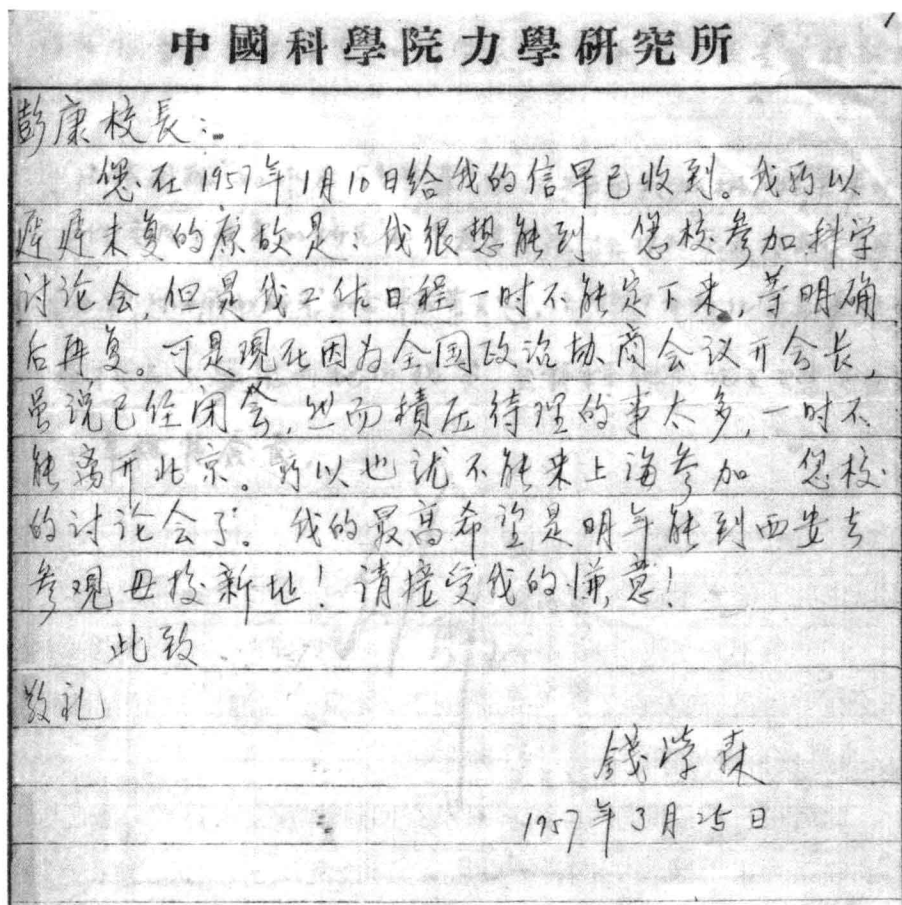 中國科學院力學研究所
彭康校長：
您在1957年1月10日给我的信早已收到。我所以
迟迟未复的原故是：我很想能到 您校参加科学
讨论会，但是我工作日程一时不能定下来，等明确
后再复。可是現在因为全国政治协商会议开会长，
虽说已经闭会，然而積压待理的事太多，一时不
能离开北京。所以也就不能来上海参加 您校
的讨论会了。我的最高希望是明年能到西安去
参观母校新址！请接受我的慊意！
此致
敬礼
錢学森
1957年3月25日